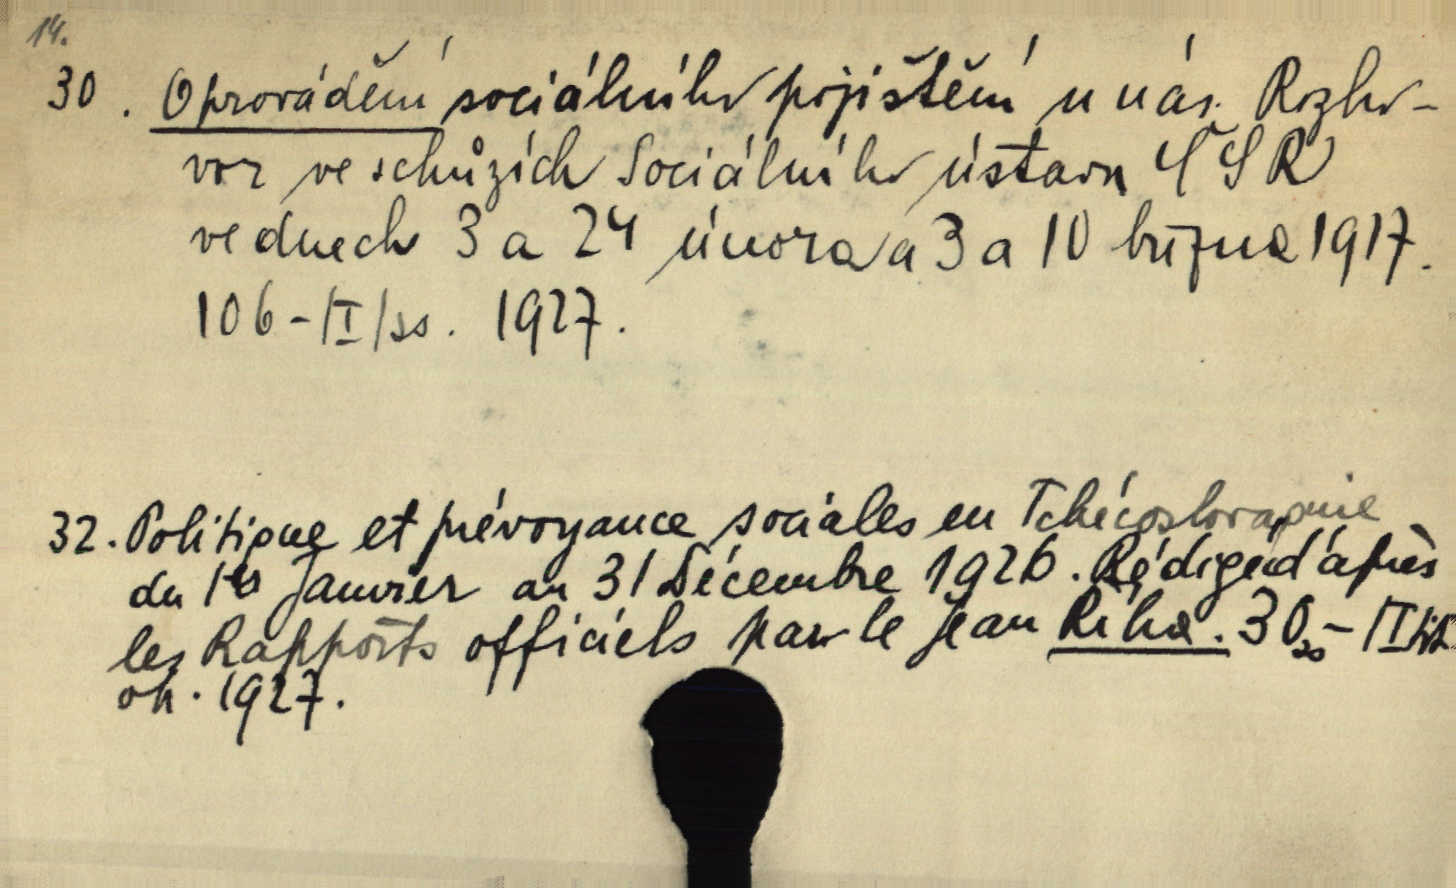 14.
30. O provádění sociálního pojištění u nás. Rozho-
vor ve schůzích Sociálního ústavu ČSR
ve dnech 3 a 24 února a 3 a 10 března 1917.
106-II/ss. 1927.
32. Politique et prévoyance sociales en Tchécoslovaquie
du 1er Janvier au 31 Décembre 1926. Rédigé d'après
les Rapports officiels par le Jean Říha. 30
ob. 1927.